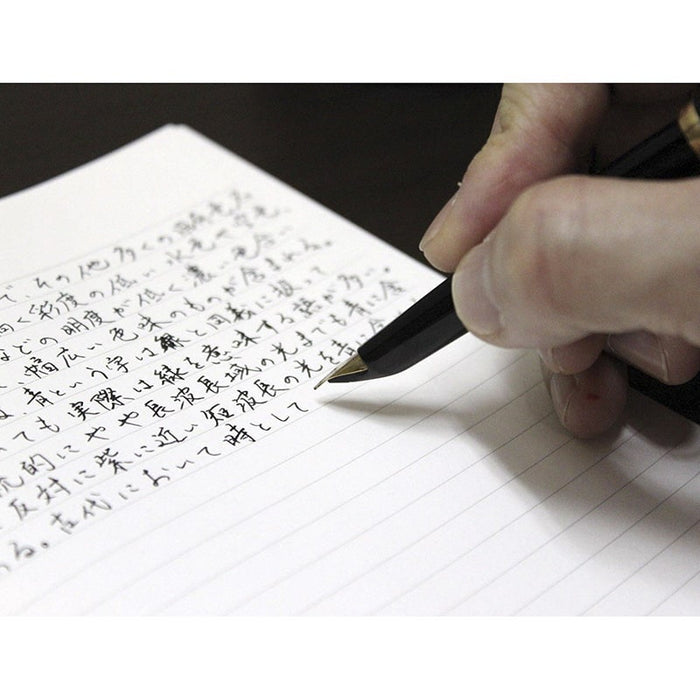 で、その他多くの
高く彩度の低い水色や空色、
などの明度が低く濃い色合い
、幅広い色味のものが含まれる。
、青という字は緑と同義に扱って
ても実際は緑を意味する語が多い。
統的にやや長波長域の光までも青に含
反対に紫に近い短波長の光を青
ある。古代において時として